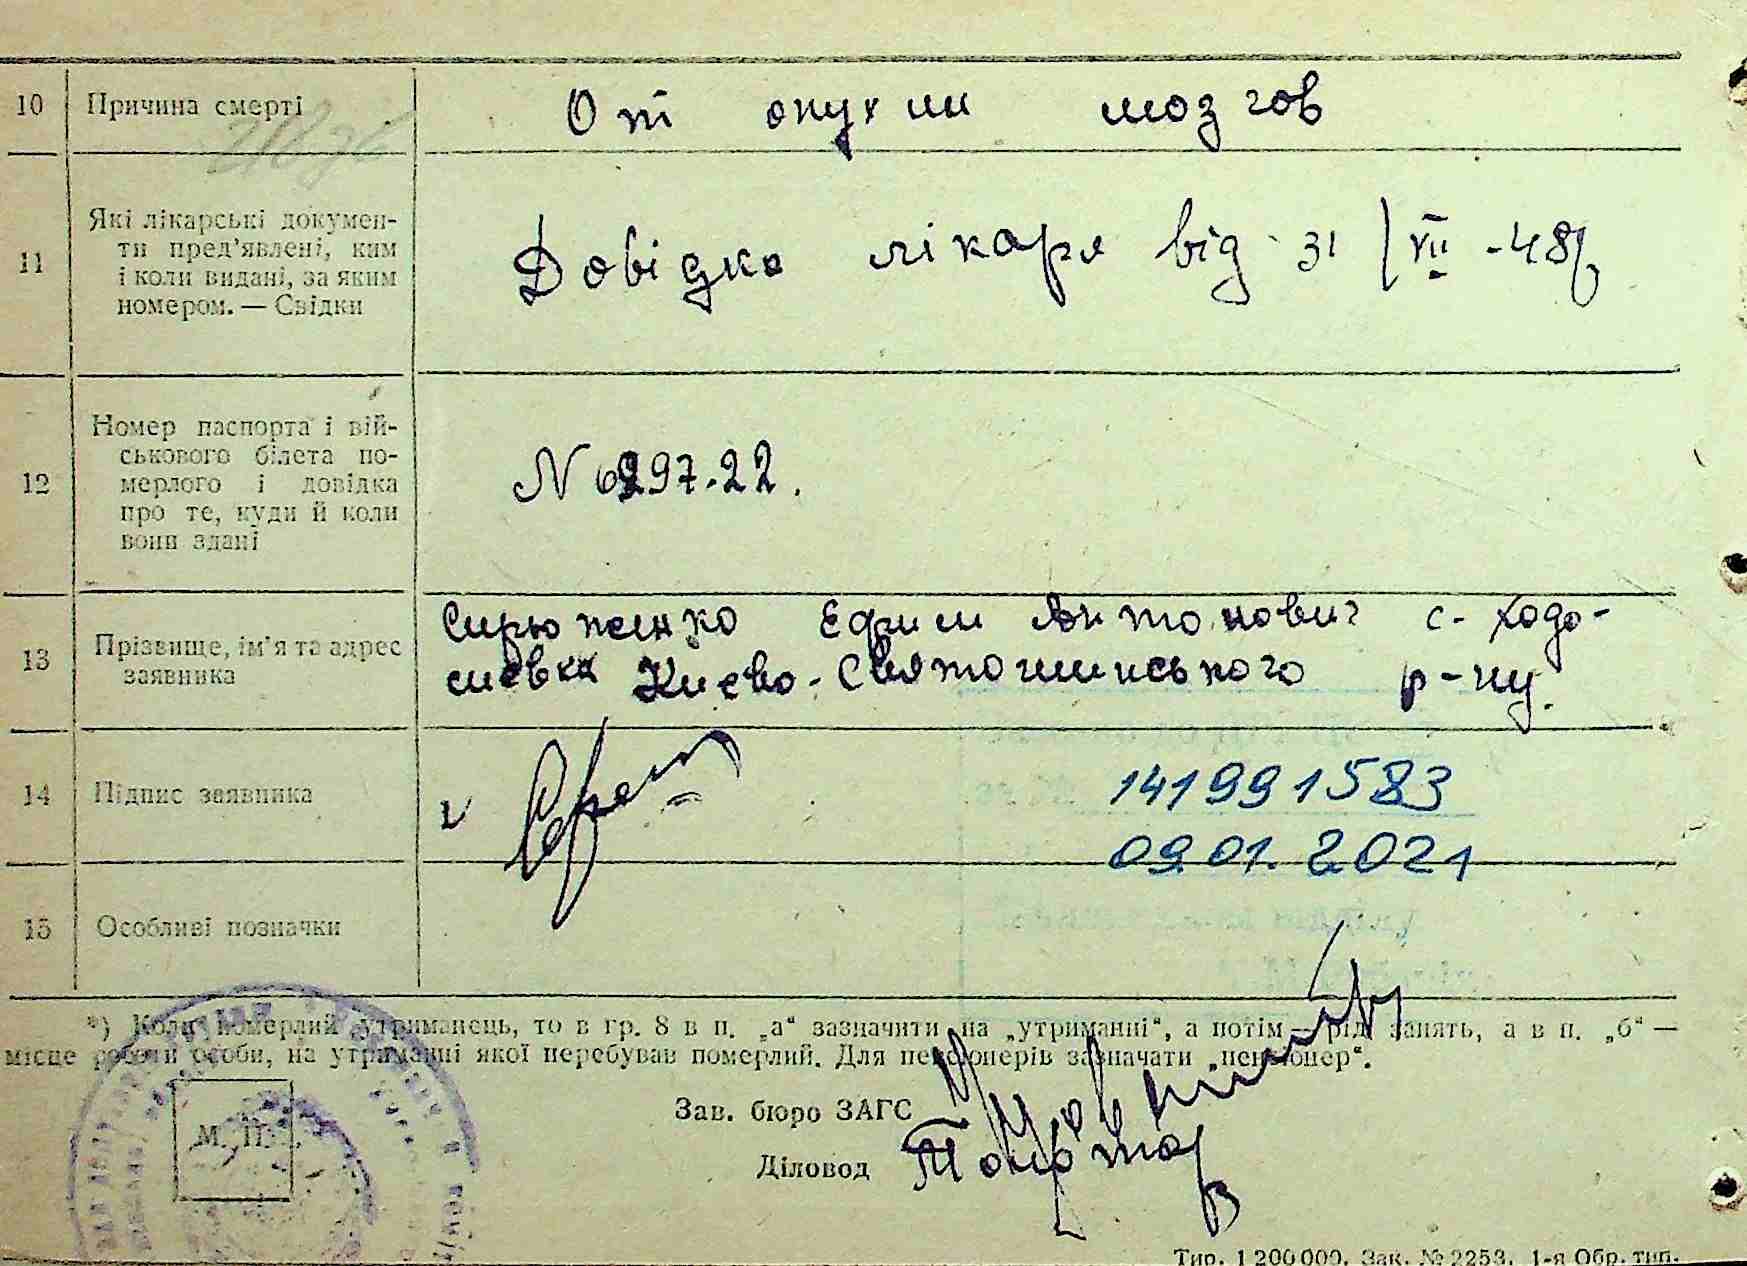 10 Причина смерті От опухли мозгов
11 Які лікарські докумен-
ти пред'явлені, ким
і коли видані, за яким
номером. — Свідки
Довідка лікаря від 31/VII-48р
12 Номер паспорта і вій-
ськового білета по-
мерлого і довідка
про те, куди й коли
вони здані
N 6997.22.
13 Прізвище, ім'я та адрес
заявника
Ефим Антонович с. Ходо-
сиевка Києво-Святошинського р-ну.
14 Підпис заявника
v
141991583
09.01.2021
15 Особливі позначки
*) Коли померлий утриманець, то в гр. 8 в п. „а“ зазначити „на „утриманні“, а потім — рід занять, а в п. „б“ —
місце роботи особи, на утриманні якої перебував померлий. Для пенсіонерів зазначати „пенсіонер“.
М. П.
Зав. бюро ЗАГС
Діловод
Тир. 1 200 000. Зак. № 2253. 1-я Обр. тип.